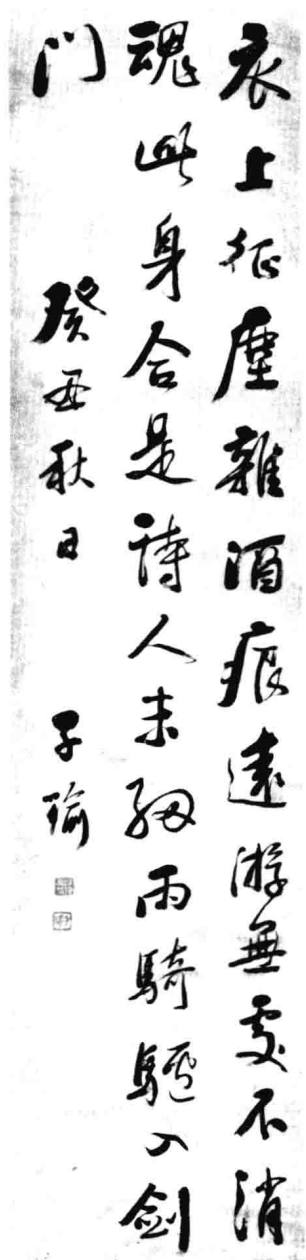 衣上征塵雜酒痕遠游無處不消
魂此身合是詩人未細雨騎驢入劍
門
癸丑秋日 子瑜